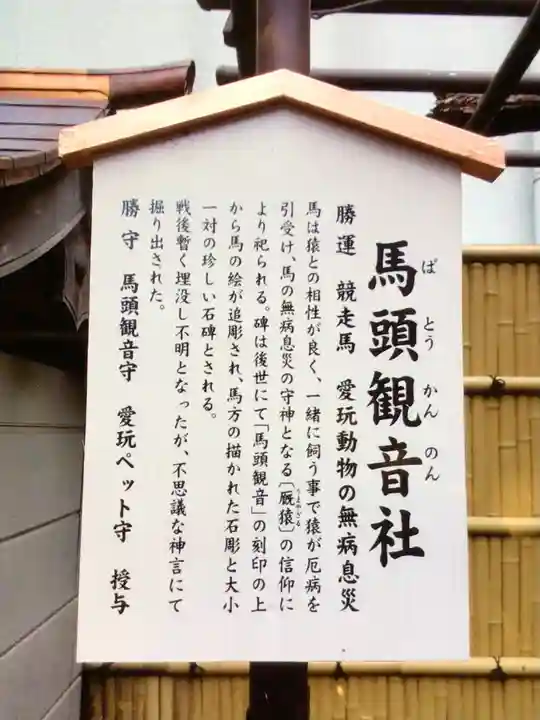 馬頭観音社
ばとうかんのん
勝運 競走馬 愛玩動物の無病息災
馬は猿との相性が良く、一緒に飼う事で猿が厄病を
引受け、馬の無病息災の守神となる〔厩猿〕の信仰に
うまやざる
より祀られる。碑は後世にて「馬頭観音」の刻印の上
から馬の絵が追彫され、馬方の描かれた石彫と大小
一対の珍しい石碑とされる。
戦後暫く埋没し不明となったが、不思議な神言にて
掘り出された。
勝守 馬頭観音守 愛玩ペット守 授与